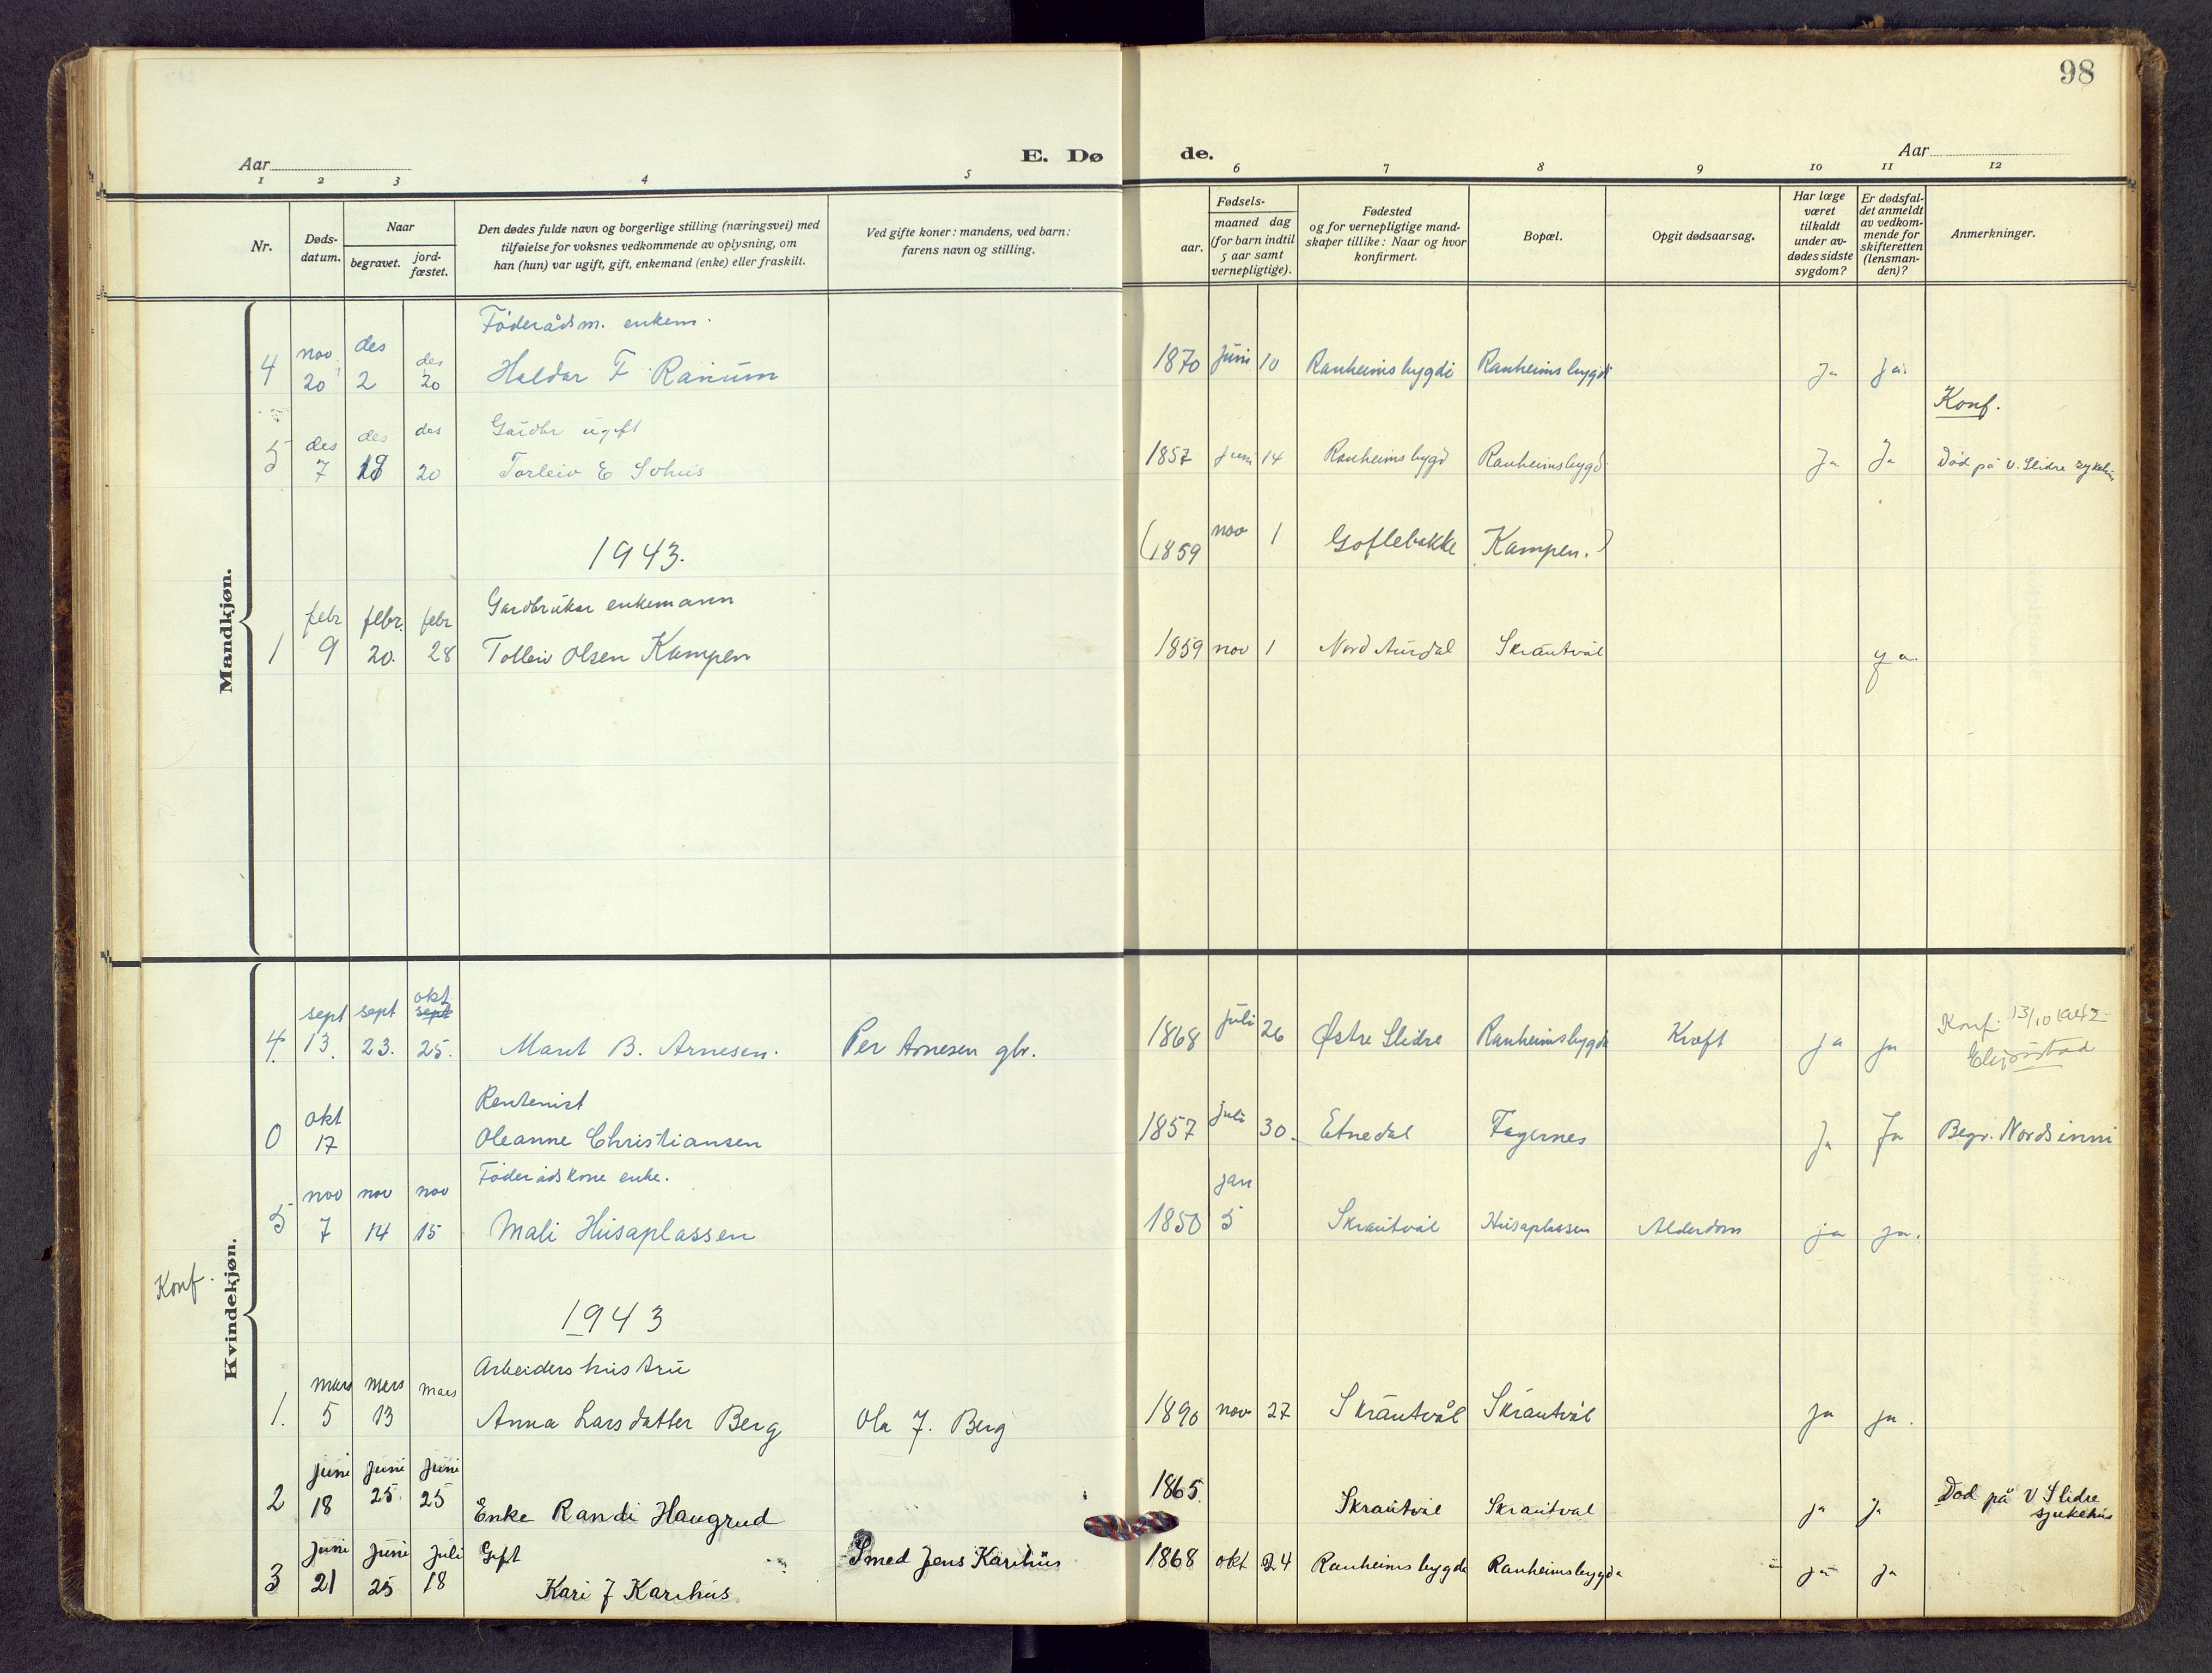 98
Aar
E. Dø
de.
Aar
1 2 3 4 5
6 7 8 9 10 11 12
Nr.
Døds-
datum.
Naar
begravet.
jord-
fæstet.
Den dødes fulde navn og borgerlige stilling (næringsvei) med
tilføielse for voksnes vedkommende av oplysning, om
han (hun) var ugift, gift, enkemand (enke) eller fraskilt.
Ved gifte koner: mandens, ved barn:
farens navn og stilling.
Fødsels-
aar.
maaned dag
(for barn indtil
5 aar samt
vernepligtige).
Fødested
og for vernepligtige mand-
skaper tillike: Naar og hvor
konfirmert.
Bopæl.
Opgit dødsaarsag.
Har læge
været
tilkaldt
under av-
dødes sidste
sygdom?
Er dødsfal-
det anmeldt
av vedkom-
mende for
skifteretten
(lensman-
den)?
Anmerkninger.
Mandkjøn.
Föderådsm. enkem.
4 nov 20 des 2 des 20 Haldor F Ranum 1870 juni 10 Ranheimsbygdi Ranheimsbygdi Ja ja.
Konf.
Gardbr ugift
5 des 7 des 19 des 20 Torleiv E Sohus 1857 juni 14 Ranheimsbygd Ranheimsbygd Ja Ja Död på V. Slidre sykehus
1943.
(1859 nov 1 Goflebakke Kampen.)
Gardbrukar enkemann
1 febr 9 febr. 20. febr 28 Tolleiv Olsen Kampen 1859 nov 1 Nord Aurdal Skrautvål ja.
Kvindekjøn.
4. sept 13. sept 23. okt sept 25. Marit B. Arnesen. Per Arnesen gbr. 1868 juli 26 Østre Slidre Ranheimsbygde Kreft ja ja Konf. 13/10 1942
Rentenist
0 okt 17 Oleanne Christiansen 1857 juli 30. Etnedal Fagernes Ja Ja Begr. Nordsinni
Föderådskone enke.
5 nov 7 nov 14 nov 15 Mali Husaplassen 1850 jan 5 Skrautvål Husaplassen Alderdom ja ja.
Konf.
1943
Arbeiders hustru
1. mars 5 mars 13 mars Anna Larsdatter Berg Ola J. Berg 1890 nov 27 Skrautvål Skrautvål ja ja.
2 juni 18 juni 25. juni 25 Enke Randi Haugrud 1865. Skrautvål Skrautval ja ja Död på V Slidre
sjukehus
Gift
3 juni 21 juni 25 juli 18 Kari J Karihus Smed Jens Karihus 1868 okt 24 Ranheimsbygda Ranheimsbygda ja ja